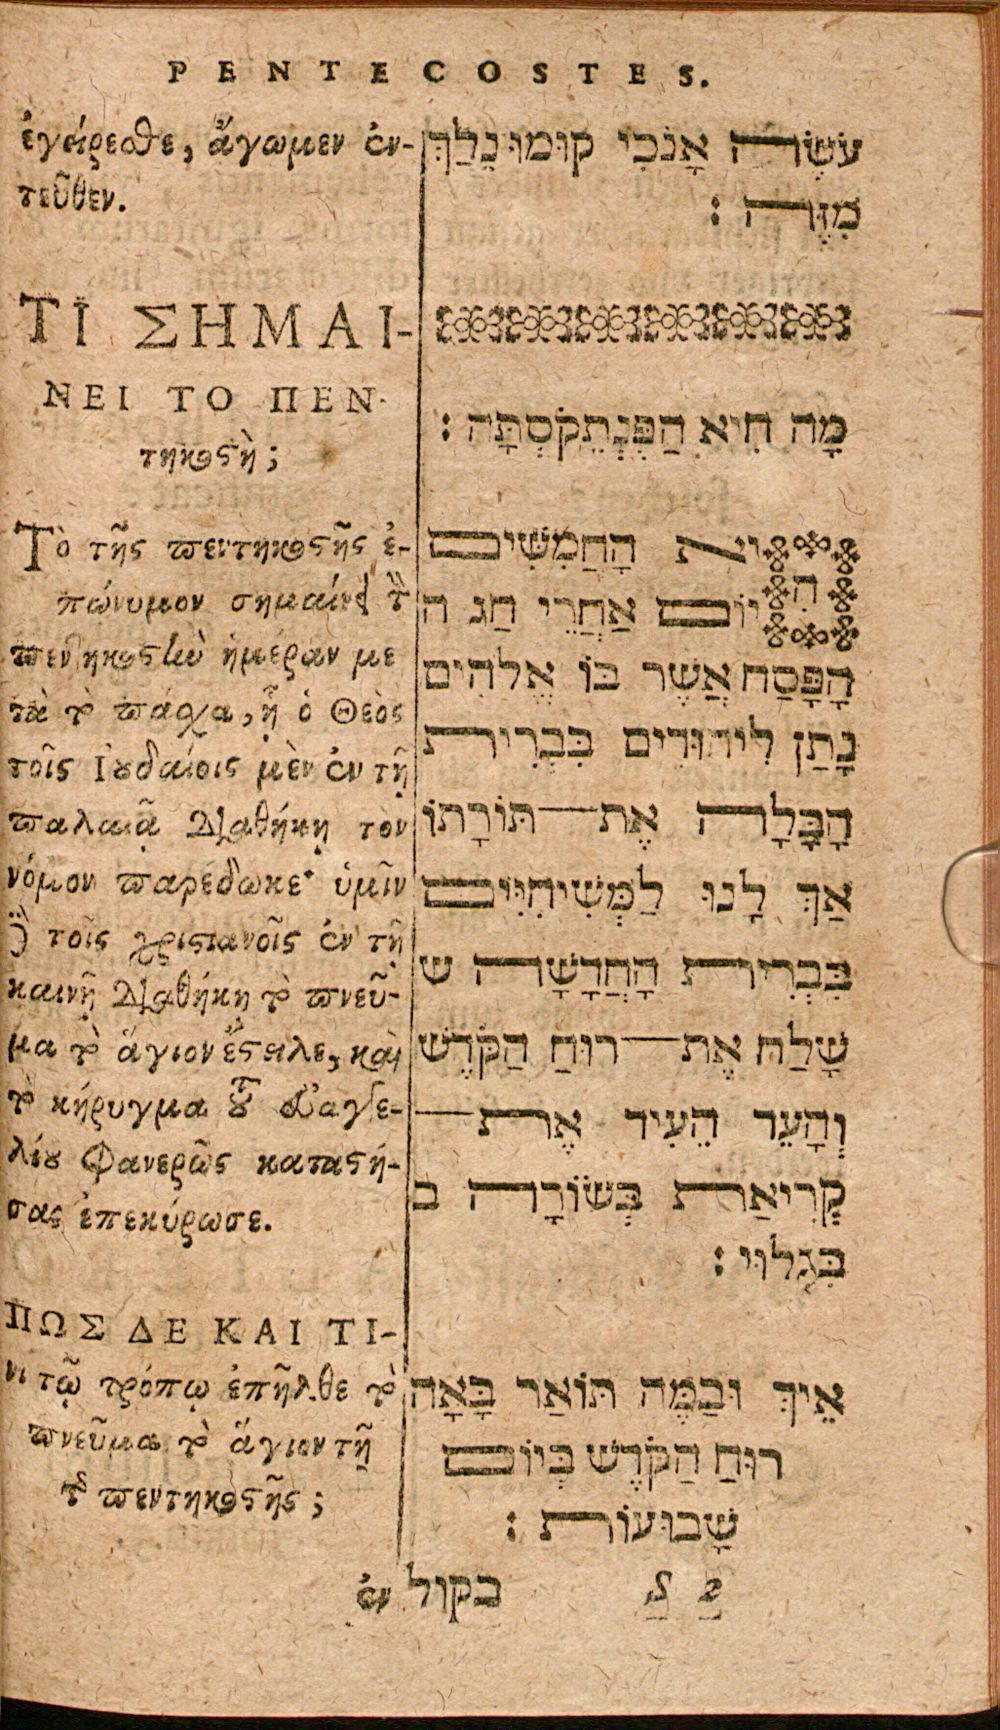 PENTECOSTES.
ἐγείρεσθε, ἄγωμεν ἐν-
τεῦθεν.
ΤΙ ΣΗΜΑΙ-
ΝΕΙ ΤΟ ΠΕΝ-
τηκοστὴ;
Τὸ τῆς πεντηκοστῆς ἐ-
πώνυμον σημαίνει τὴν
πεντηκοστὴν ἡμέραν με
τὰ τὸ πάσχα, ᾗ ὁ Θεὸς
τοῖς Ἰουδαίοις μὲν ἐν τῇ
παλαιᾷ Διαθήκῃ τὸν
νόμον παρέδωκε· ὑμῖν
δὲ τοῖς χριστιανοῖς ἐν τῇ
καινῇ Διαθήκῃ τὸ πνεῦ-
μα τὸ ἅγιον ἔστειλε, καὶ
τὸ κήρυγμα τοῦ εὐαγγε-
λίου φανερῶς καταστή-
σας ἐπεκύρωσε.
ΠΩΣ ΔΕ ΚΑΙ ΤΙ-
νι τῷ τρόπῳ ἐπῆλθε τὸ
πνεῦμα τὸ ἅγιον τῇ
τῆς πεντηκοστῆς;
ἐν
עֹשֶׂה אָנֹכִי קוּמוּ נֵלֵךְ
מִזֶּה :
מָה הִיא הַפֶּנְתֵקֹסְתָּה :
הִוא הַחֲמִשִּׁים
יוֹם אַחֲרֵי חַג ה
הַפָּסַח אֲשֶׁר בּוֹ אֱלֹהִים
נָתַן לִיהוּדִים בִּבְרִית
הַבָּלָה אֶת־תּוֹרָתוֹ
אַךְ לָנוּ לַמְּשִׁיחִיִּים
בִּבְרִית הַחֲדָשָׁה ש
שָׁלַח אֶת־רוּחַ הַקֹּדֶשׁ
וְהָעֵד הֵעִיד אֶת־
קְרִיאַת בְּשׂוֹרָה ב
בִּגְלוּי :
אֵיךְ וּבַמֶּה תּוֹאַר בָּאָה
רוּחַ הַקֹּדֶשׁ בְּיוֹם
שָׁבוּעוֹת :
S 2
בקול